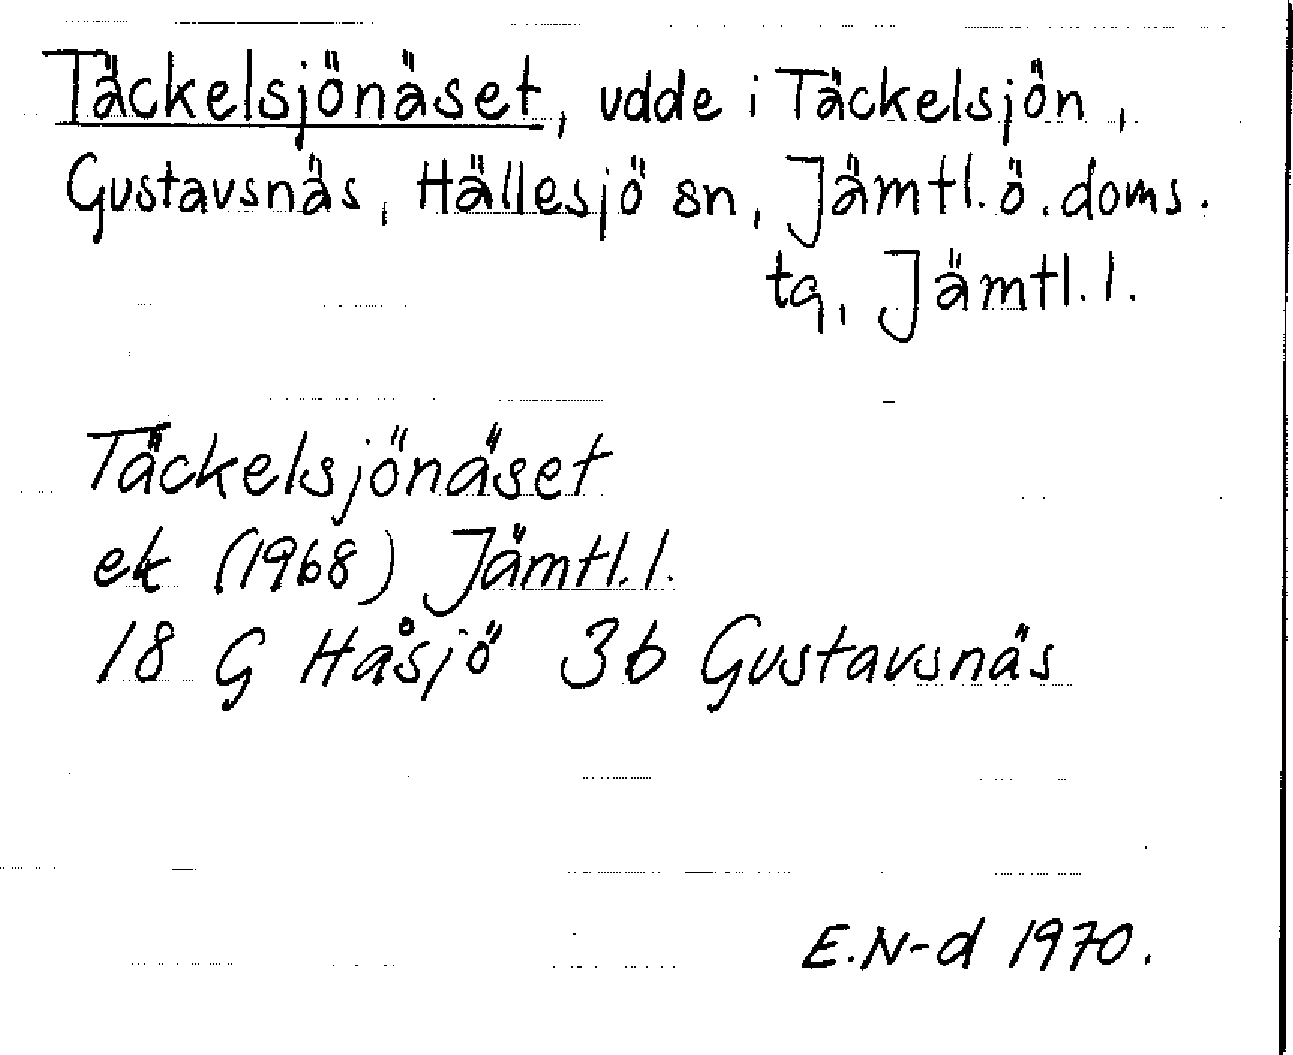 Täckelsjönäset, udde i Täckelsjön,
Gustavsnäs, Hällesjö sn, Jämtl. ö. doms.
tg, Jämtl. l.
Täckelsjönäset
ek (1968) Jämtl. l.
18 G Håsjö 3b Gustavsnäs
E.N-d 1970.